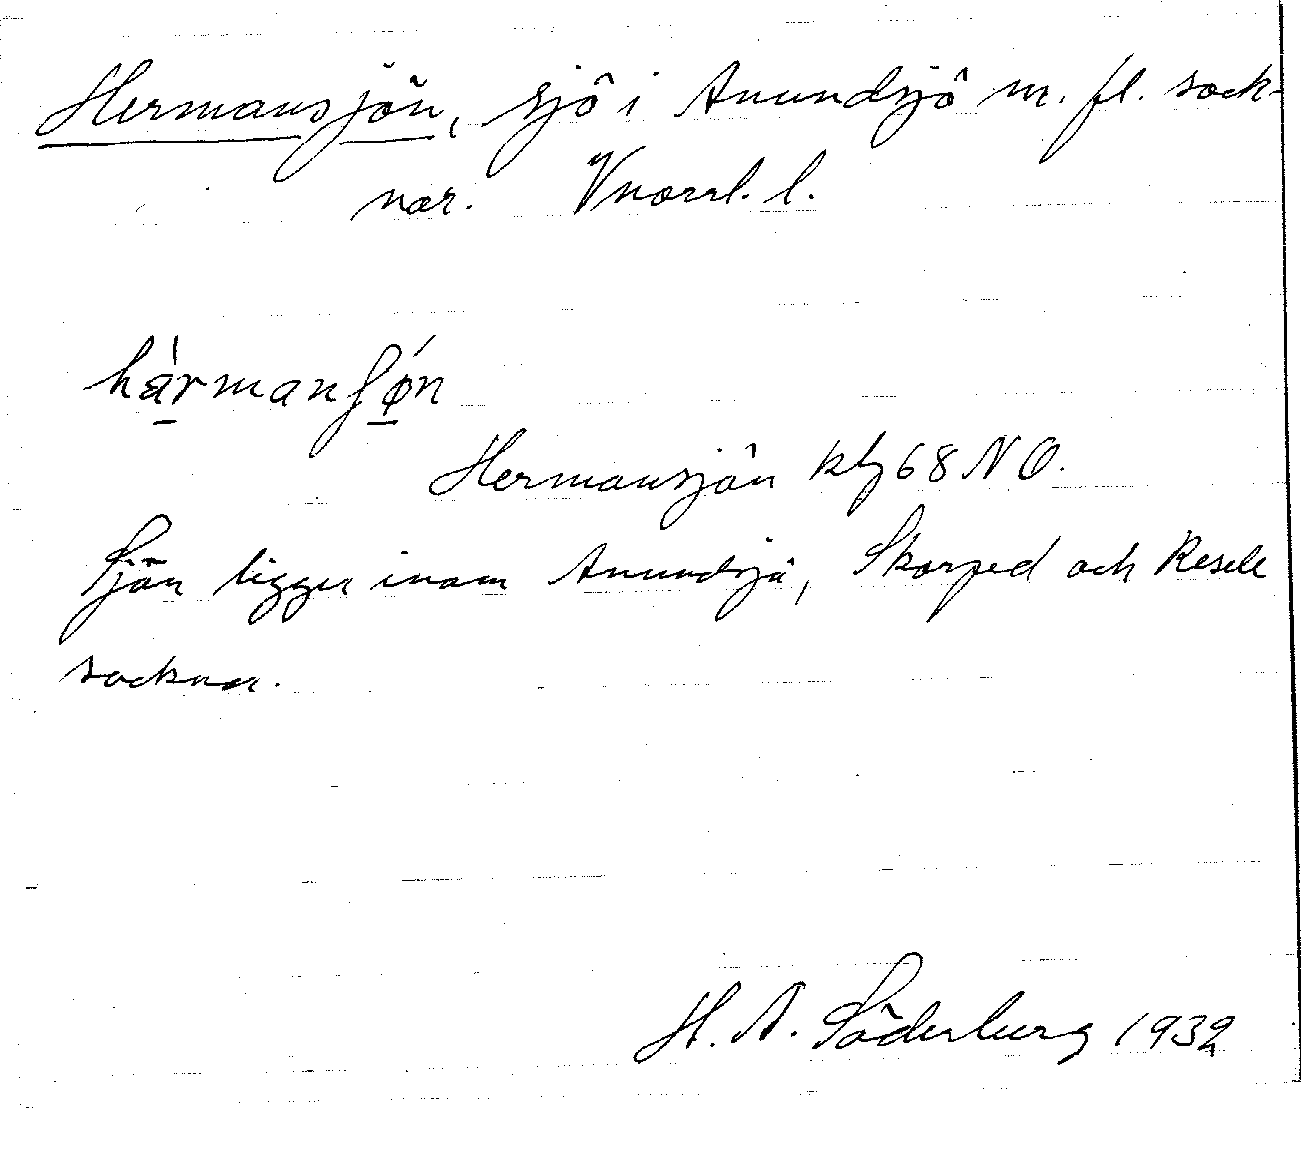 Hermansjön, sjö i Anundsjö m. fl. sock-
nar. Vnorrl. l.
hàrmanʃǿn
Hermansjön kbl 68 NO.
Sjön ligger inom Anundsjö, Skorped och Resele
socknar.
H. A. Söderberg 1932